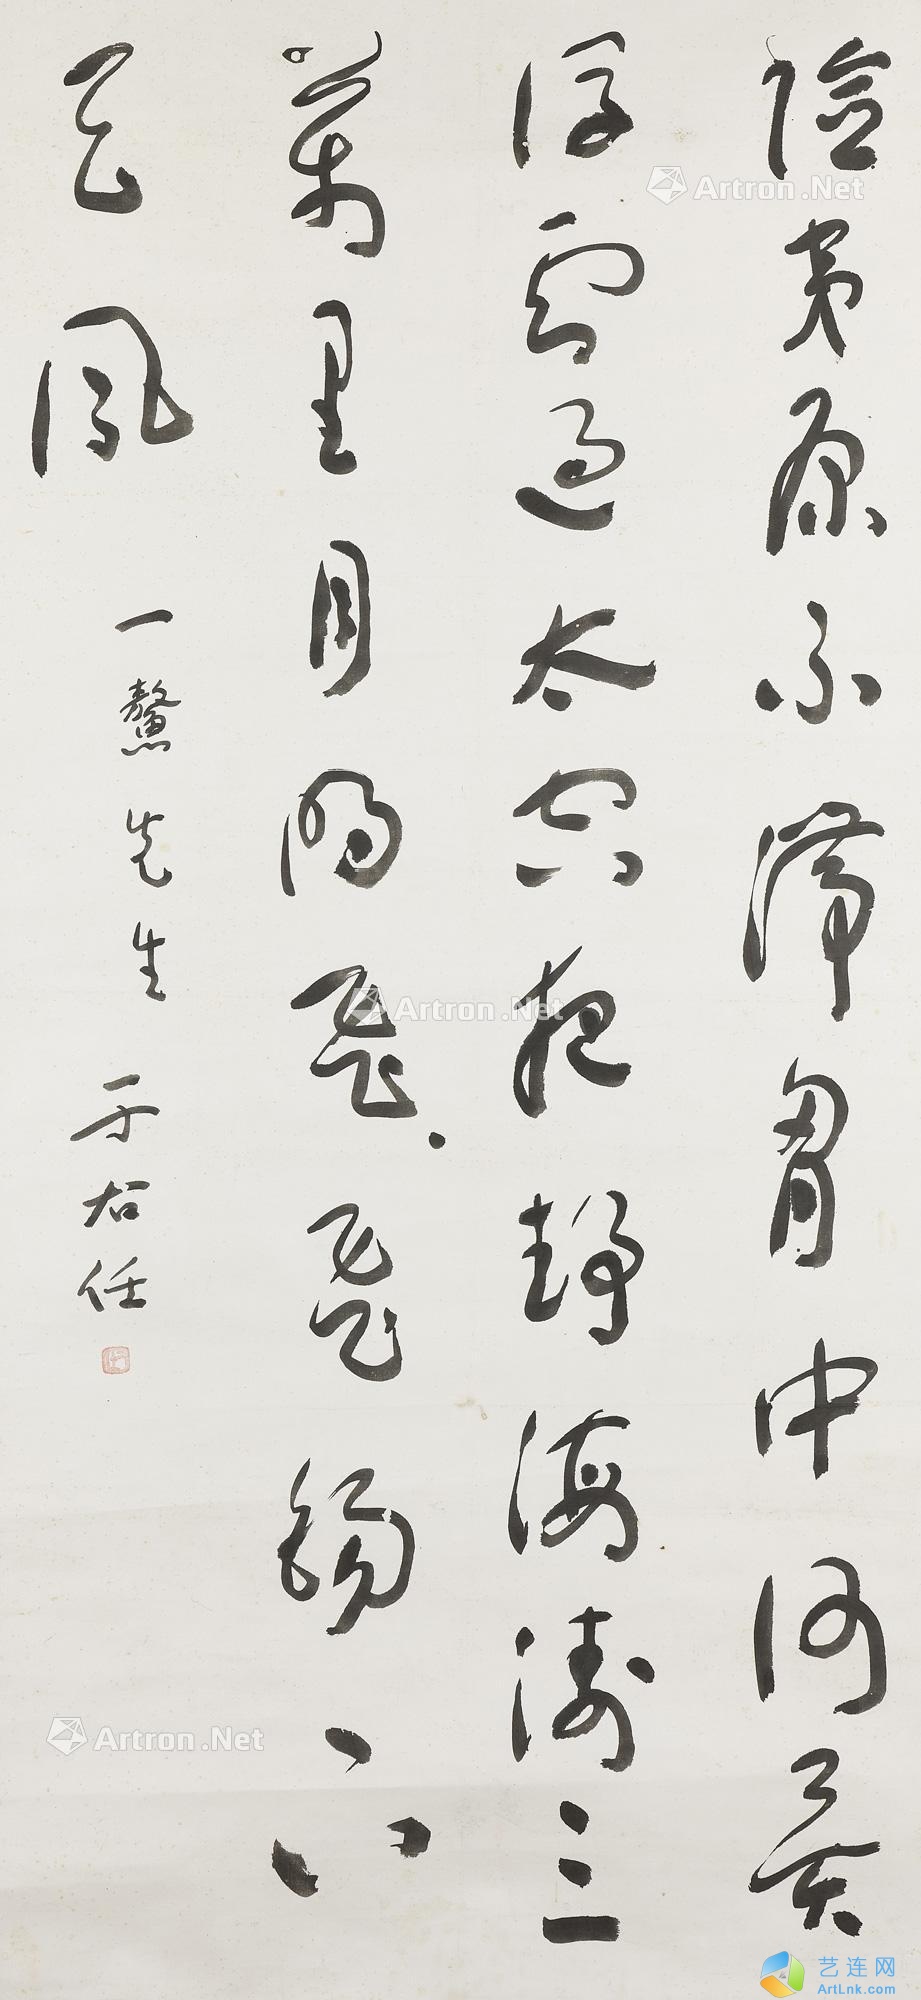 險夷原不滯胸中何異
浮雲過太空夜靜海濤三
萬里月明飛飛錫下
天風
一鰲先生
于右任
Artron.Net
Artron.Net
Artron.Net
艺连网
ArtLnk.com